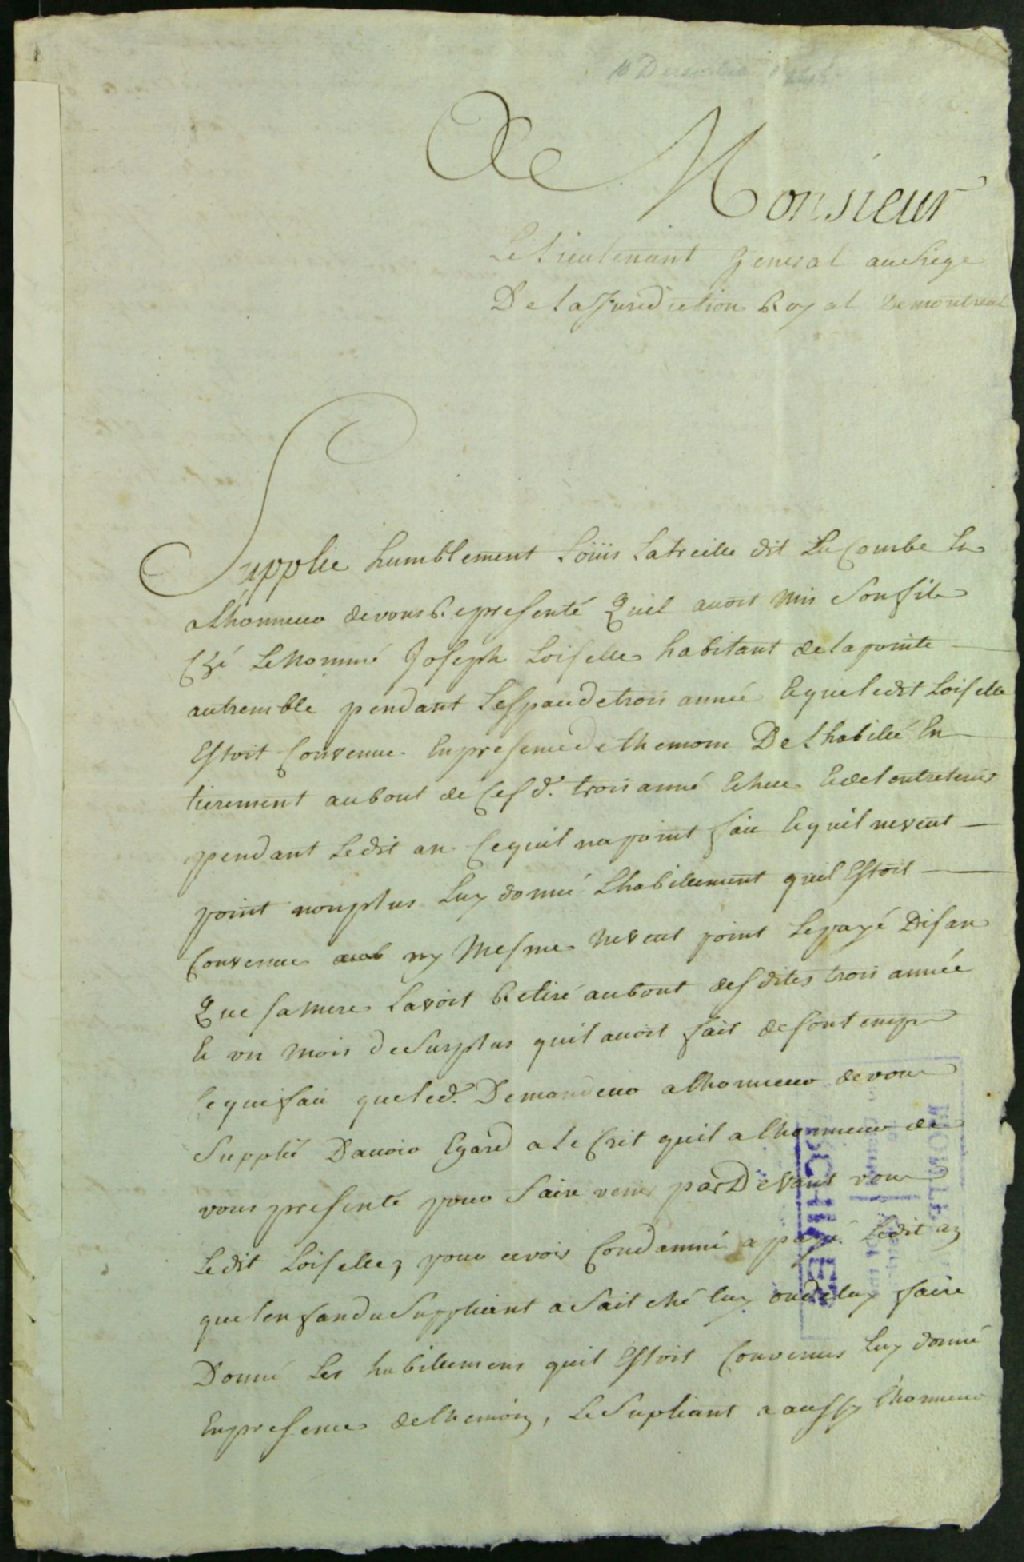 A Monsieur
Le Lieutenant general au siege
De la Jurediction Royal de montreal
Supplie humblement Loüis Latreille dit La Combe En
a lhonneur de vous Representé Quil auoit Mis Son fils
Ché Le Nommé Joseph Loiselle habitant de la pointe
au tremble pendant Lespace de trois année Le quel edit Loiselle
Estoit Convenue En presence de themoins De Lhabilié En
tierement au bout de Ces d. trois anné Echue E de Lentretenir
pendant Ledit an Ce quil na point fai E quil ne veut
point non plus Luy donné Lhabillement quil Estoit
Convenue ny Mesme Ne veut point Le payé Disan
Que sa Mere Lavoit Retiré au bout des dites trois année
E un Mois de Surplus quil auoit fait de son temps
Ce qui fai que led. Demandeur a lhonneur de vous
Supplié Dauoir Egard a le Crit quil a lhonneur de
vous presenté pour faire venir par Devant vous
Ledit Loiselle, pour ce voir Condamné a payé Ledit an
que lenfan du Suppliant a fait ché luy ou de luy faire
Donné Les habillemens quil Estoit Convenus Luy donné
En presence de themoin, Le Supliant a aussy lhonneur